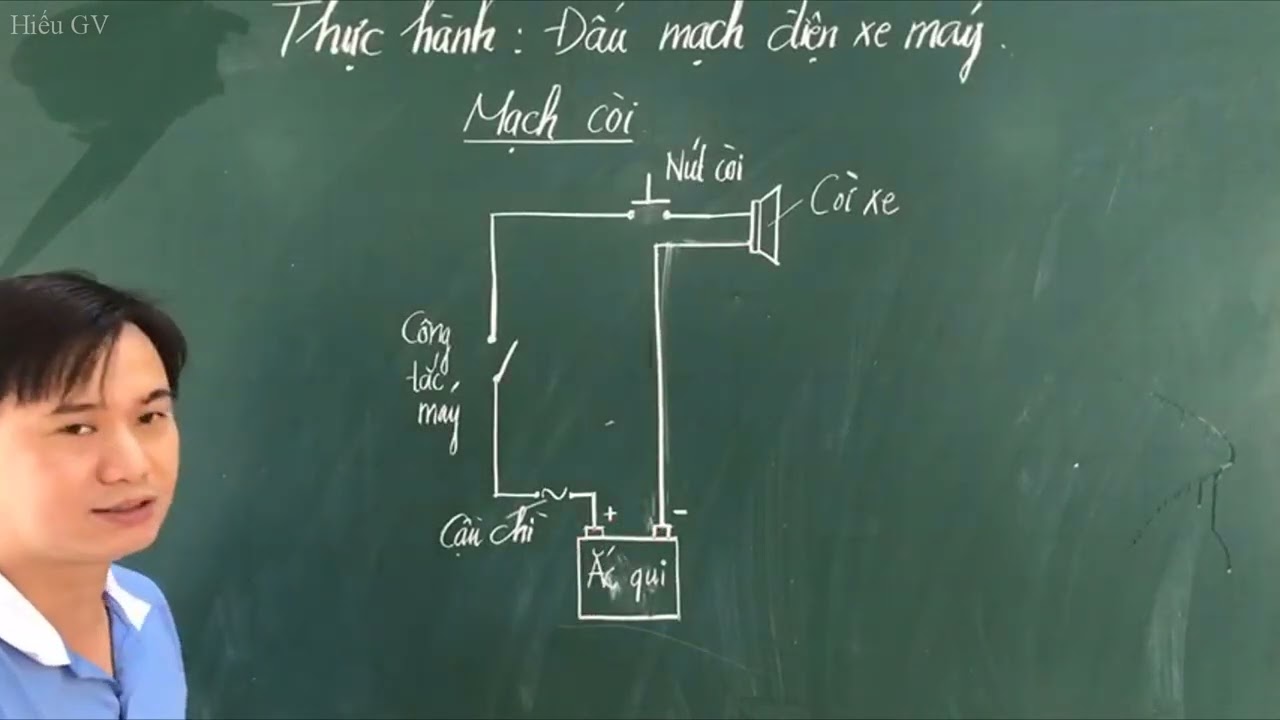 Hiếu GV
Thực hành: Đấu mạch điện xe máy.
Mạch còi
Nút còi
Còi xe
Công
tắc
máy
Cầu chì
+ -
Ắc qui